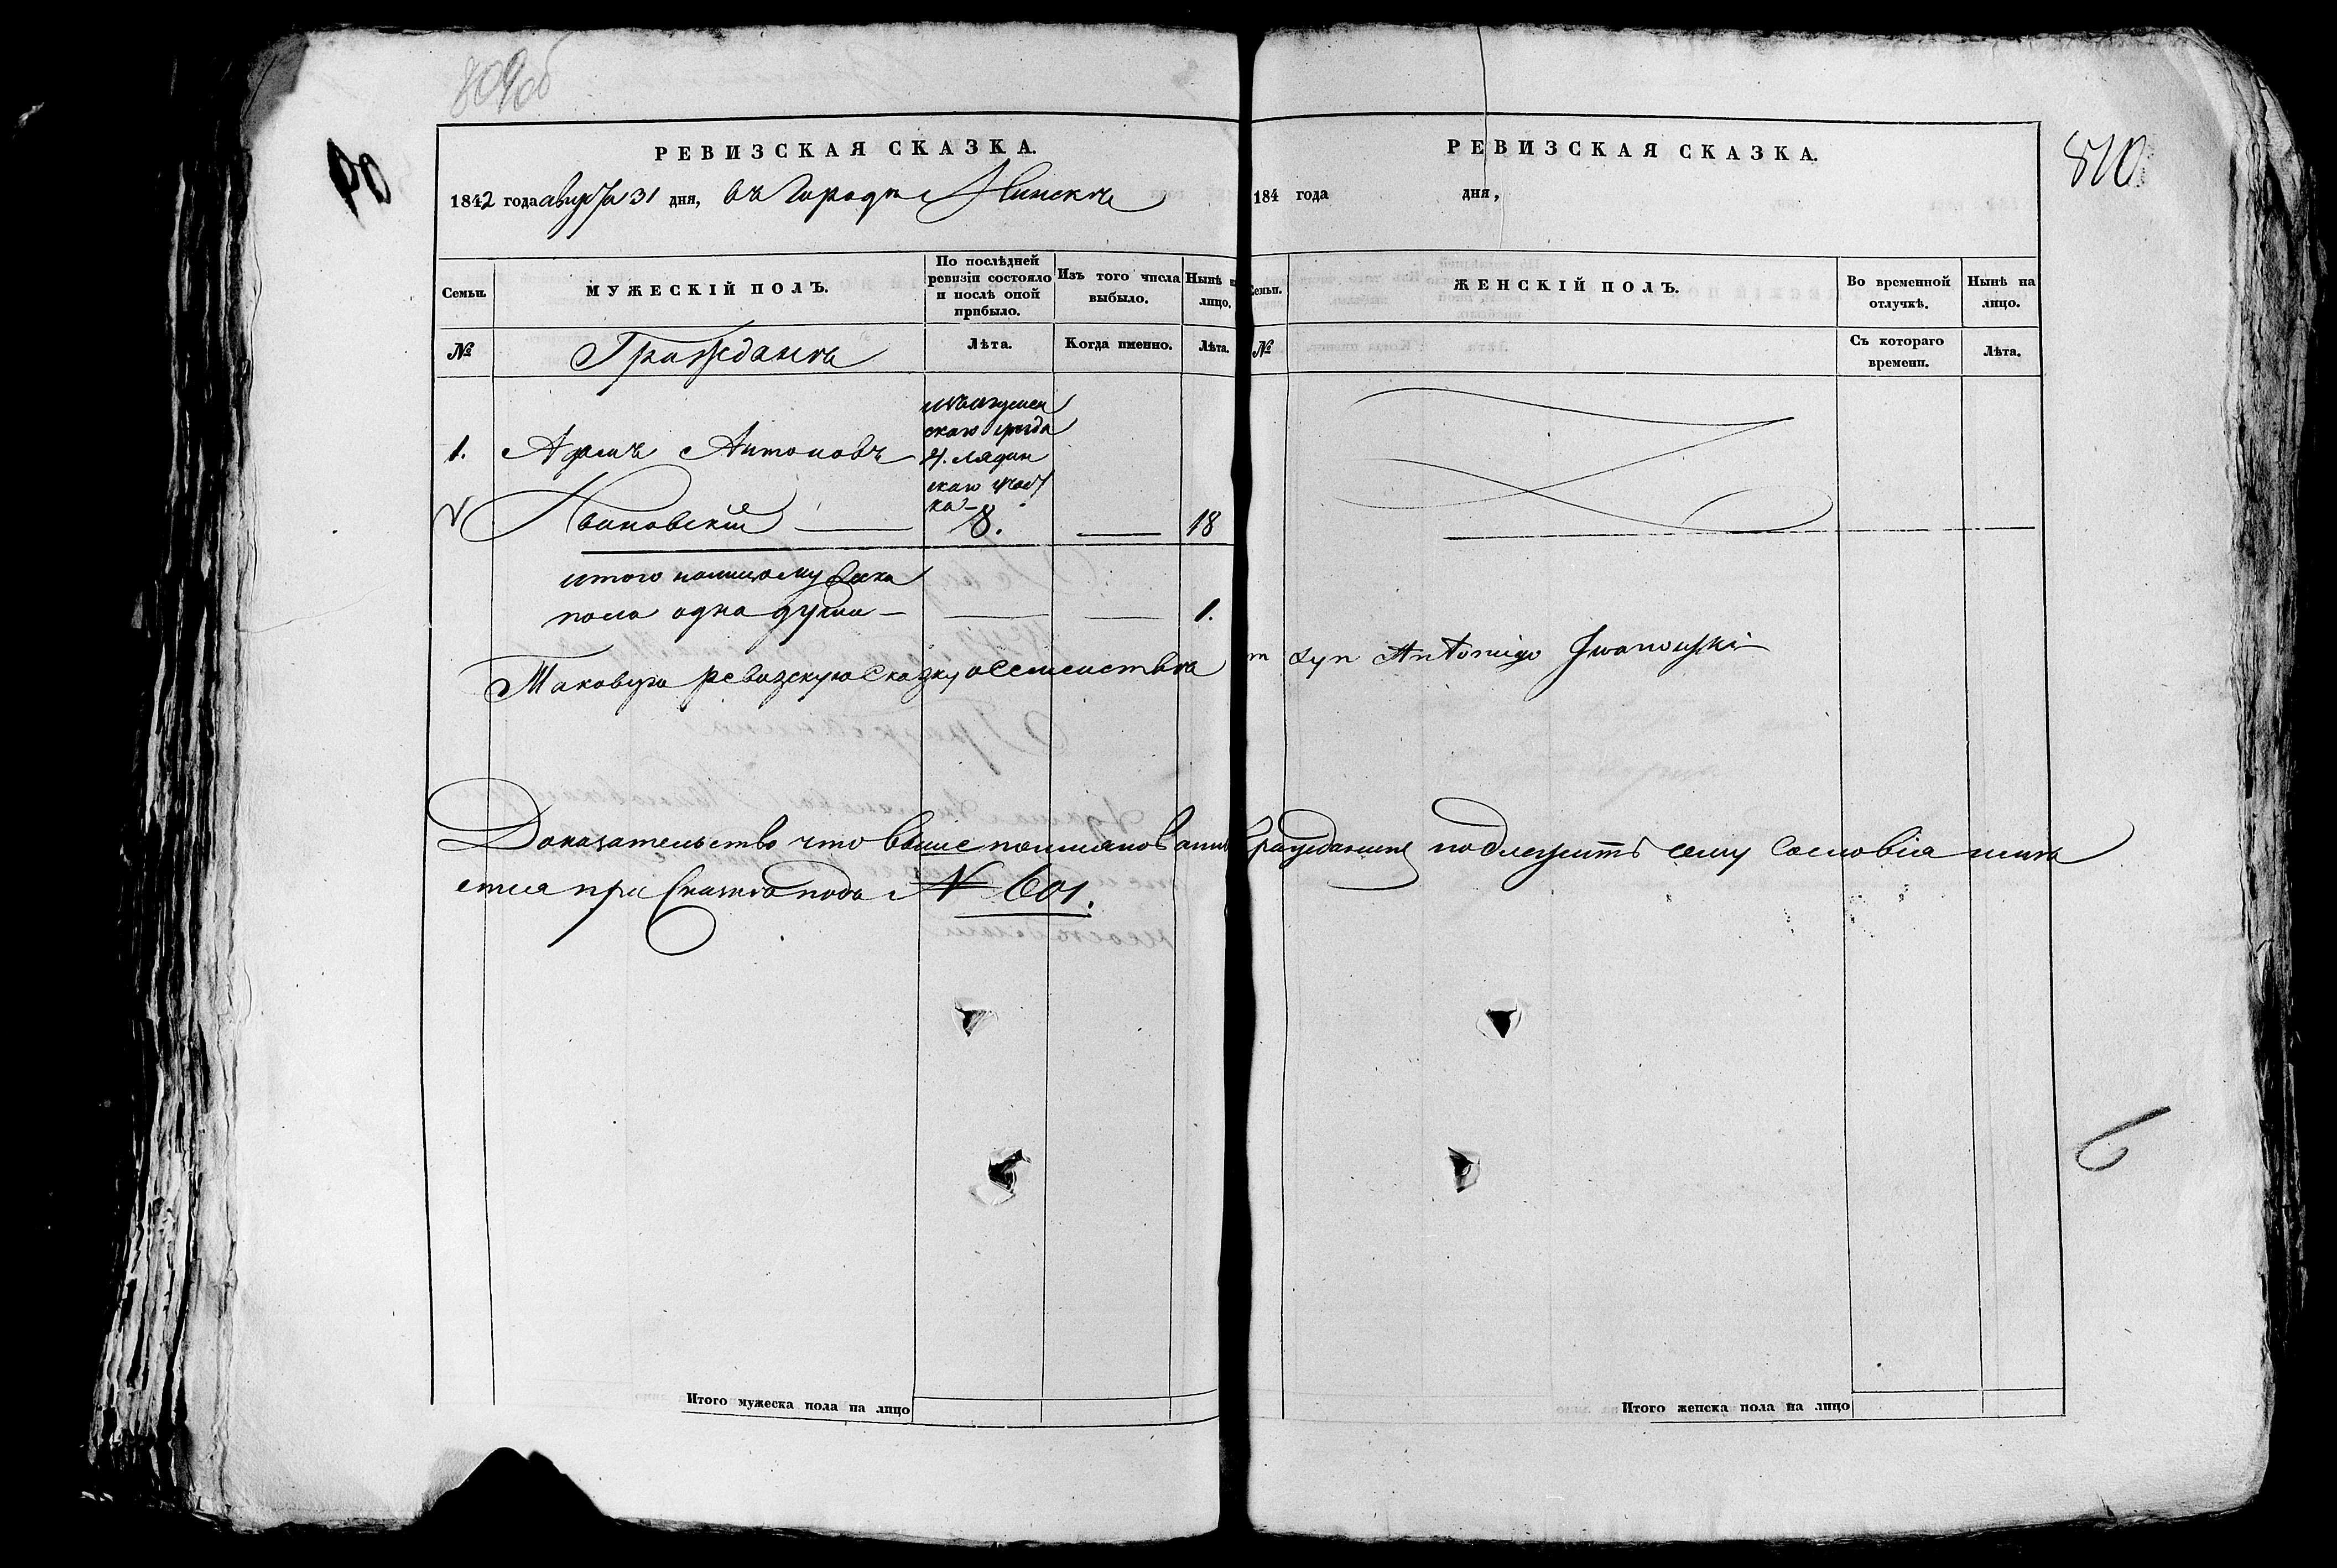 809об
РЕВИЗСКАЯ СКАЗКА.
1842 года августа 31 дня, въ Городѣ Минскѣ
Семьи.
МУЖЕСКІЙ ПОЛЪ.
По послѣдней ревизіи состояло и послѣ оной прибыло.
Изъ того числа выбыло.
Нынѣ н лицо.
№
Гражданѣ
Лѣта.
Когда именно.
Лѣта.
1. Адамъ Антоновъ
Ивановскій — 8. — 18
изъ Игумен
скаго уѣзда
4. Лядин
скаго участ
ка
итого налицо мужеска
пола одна душа — — — 1.
Таковую ревизскую сказку о семействѣ
Доказательство что выше поименованн
ется при Сказкѣ подъ № 601.
Итого мужеска пола на лицо
810
РЕВИЗСКАЯ СКАЗКА.
184 года дня,
Семьи.
ЖЕНСКІЙ ПОЛЪ.
Во временной отлучкѣ.
Нынѣ на лицо.
№
Съ котораго времени.
Лѣта.
Syn Antoniego Iwanowski
Гражданинъ подлежитъ сему Сословію имѣ
6
Итого женска пола на лицо